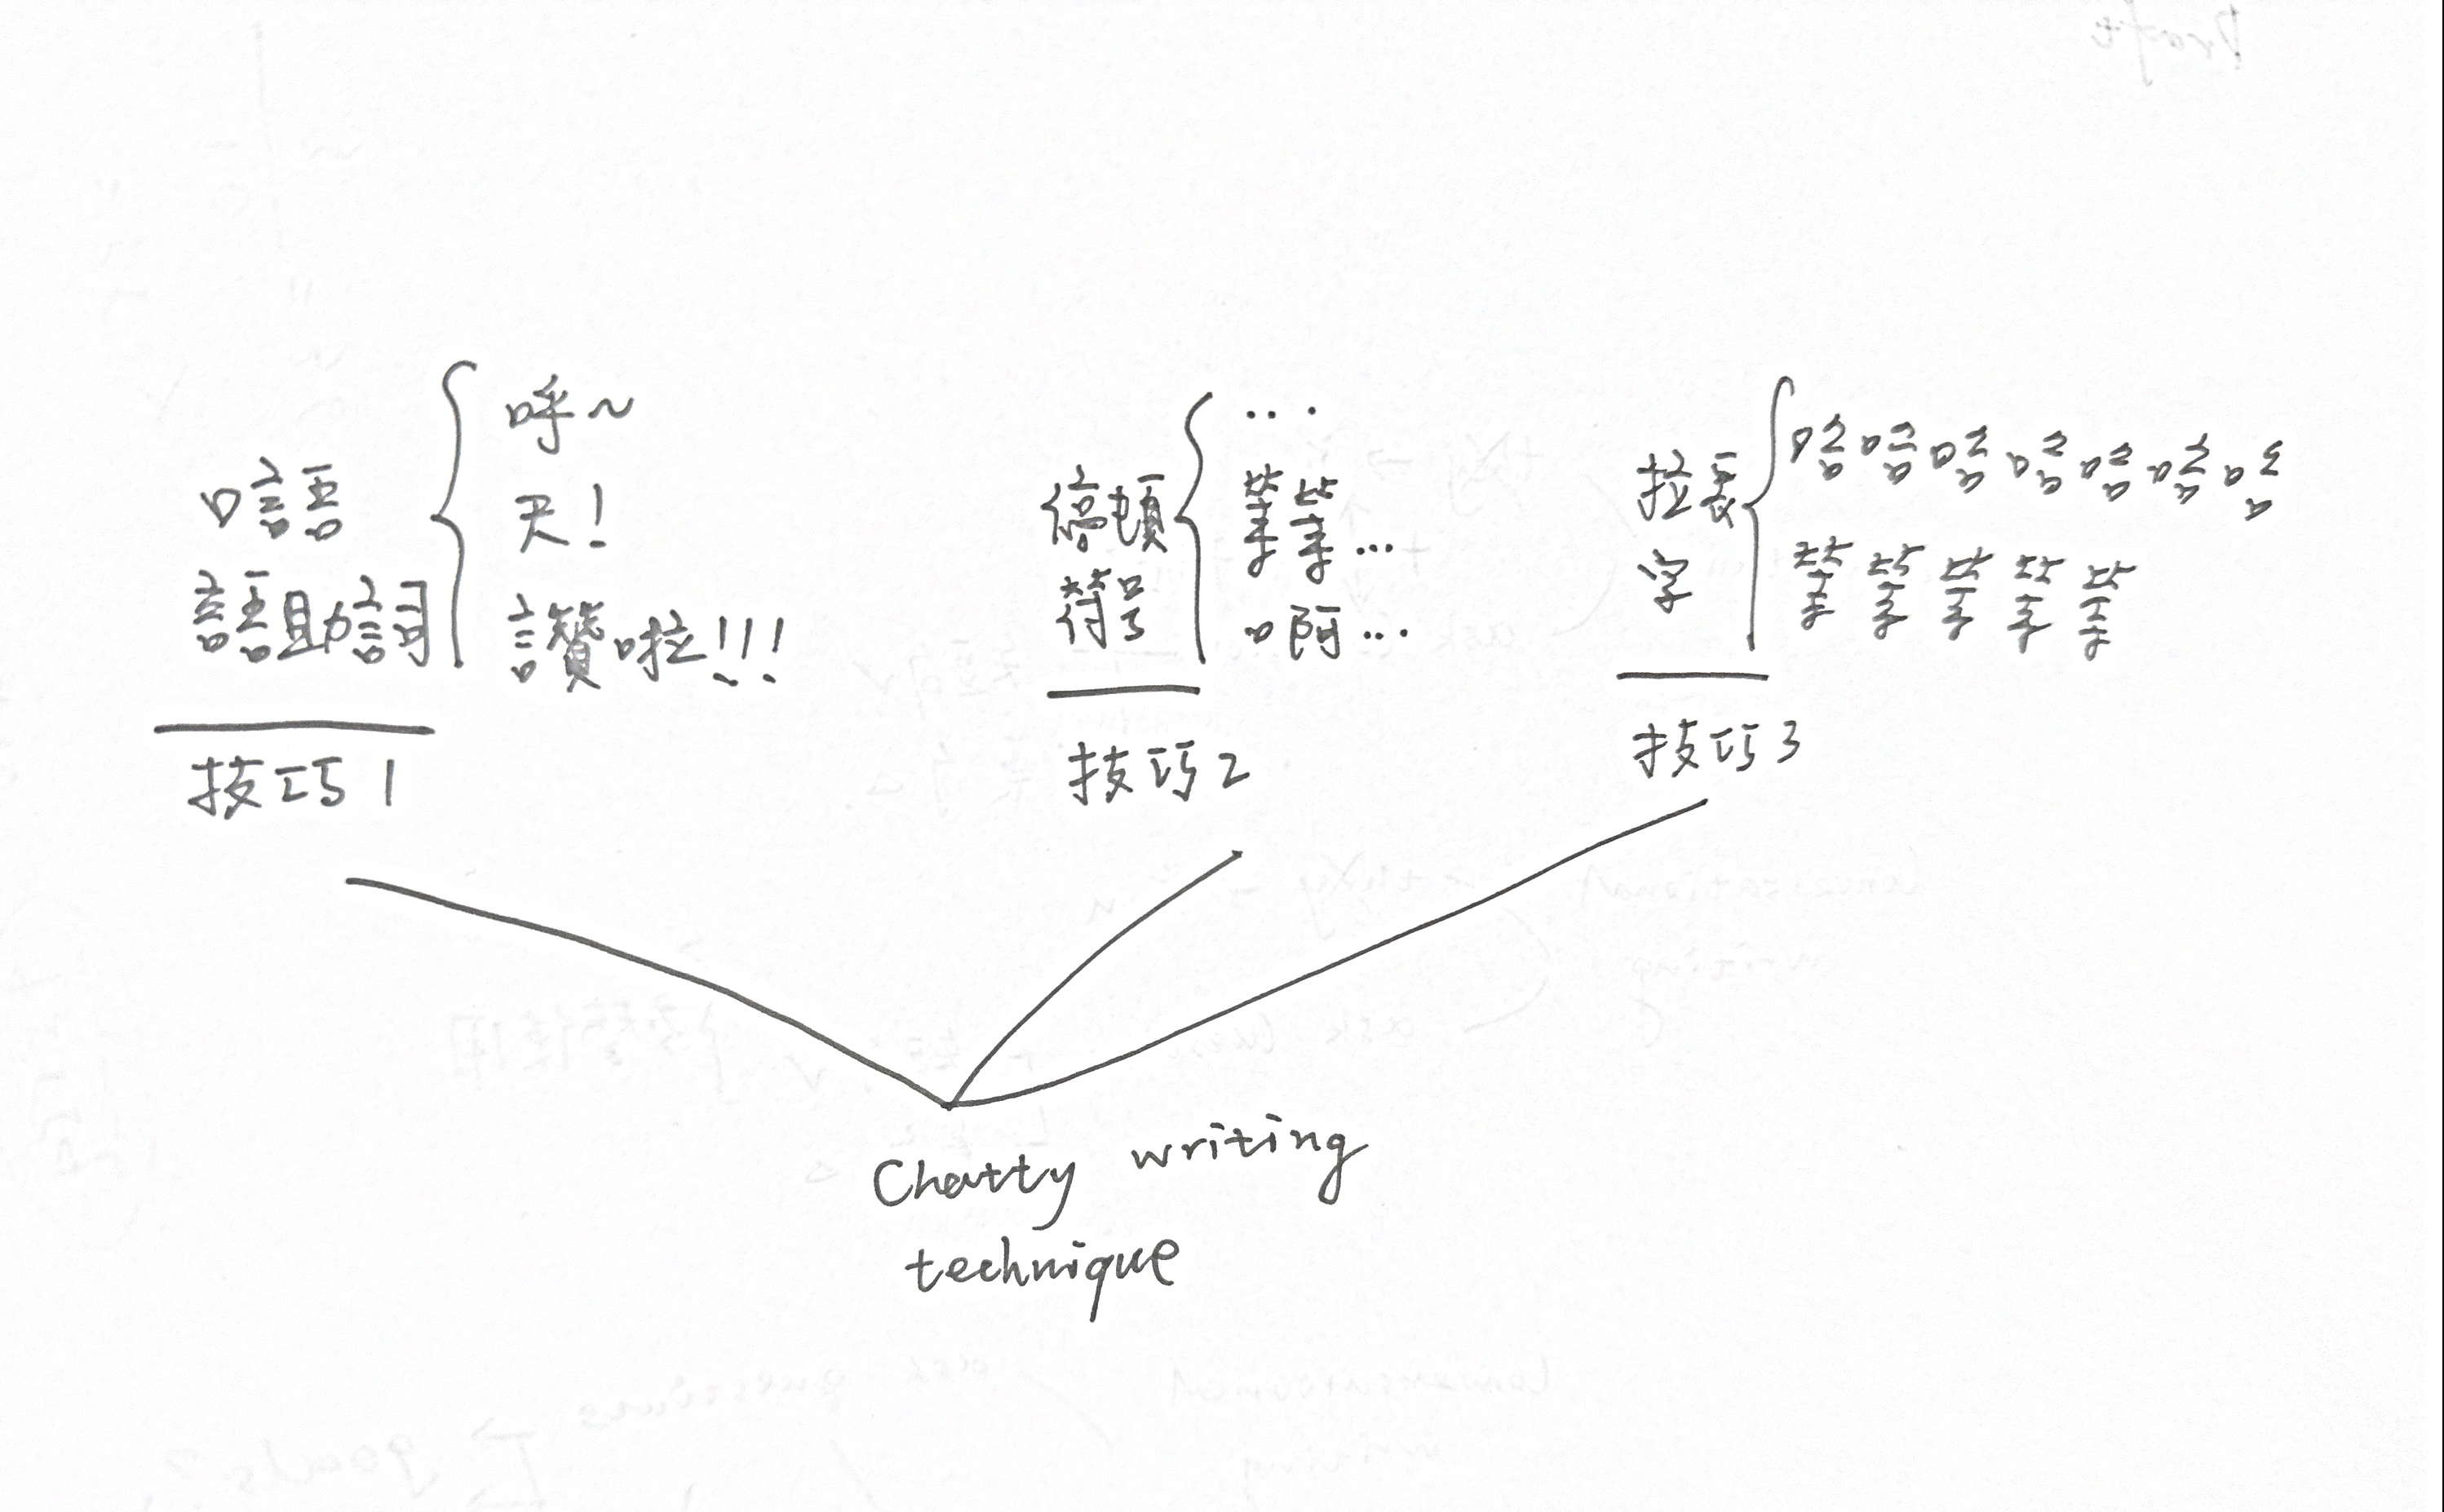 口語
語助詞
呼~
天!
讚啦!!!
技巧1
停頓
符号
...
等等...
啊...
技巧2
拉長
字
哈哈哈哈哈哈哈
等等等等等
技巧3
Chatty writing
technique